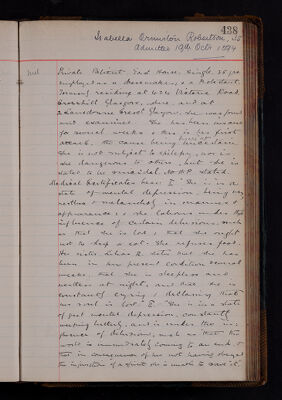 438
Isabella Ormiston Robertson, 35
Admitted 19th Octr 1894
Private Patient East House. Single. 35 yrs
employed as a dressmaker, & a Protestant.
formerly residing at 424 Victoria Road
Crosshill Glasgow, she, and at
Lansdowne Crest Glasgow, she was found
and examined. She has been insane
for several weeks & this is her first
attack. the cause being uncertain.
She is not subject to epilepsy, nor is
she dangerous to others, but she is
stated to be suicidal
Medical Certificates bear: I "She is in a
state of mental depression, being very
restless & melancholy in manner &
appearance & she labours under the
influence of certain delusions, such
as that she is lost, & that she ought
not to sleep or eat. She refuses food.
Her sister states that she has
been in her present condition several
weeks, that she is sleepless and
restless at night, and that she is
constantly crying & declaring that
her soul is lost." II "She is in a state
of great mental depression, constantly
weeping bitterly, and is under the in-
fluence of delusions, such as that the
world is immediately coming to an end, &
that in consequence of her not having obeyed
the inspiration of a spirit she is unable to save it."